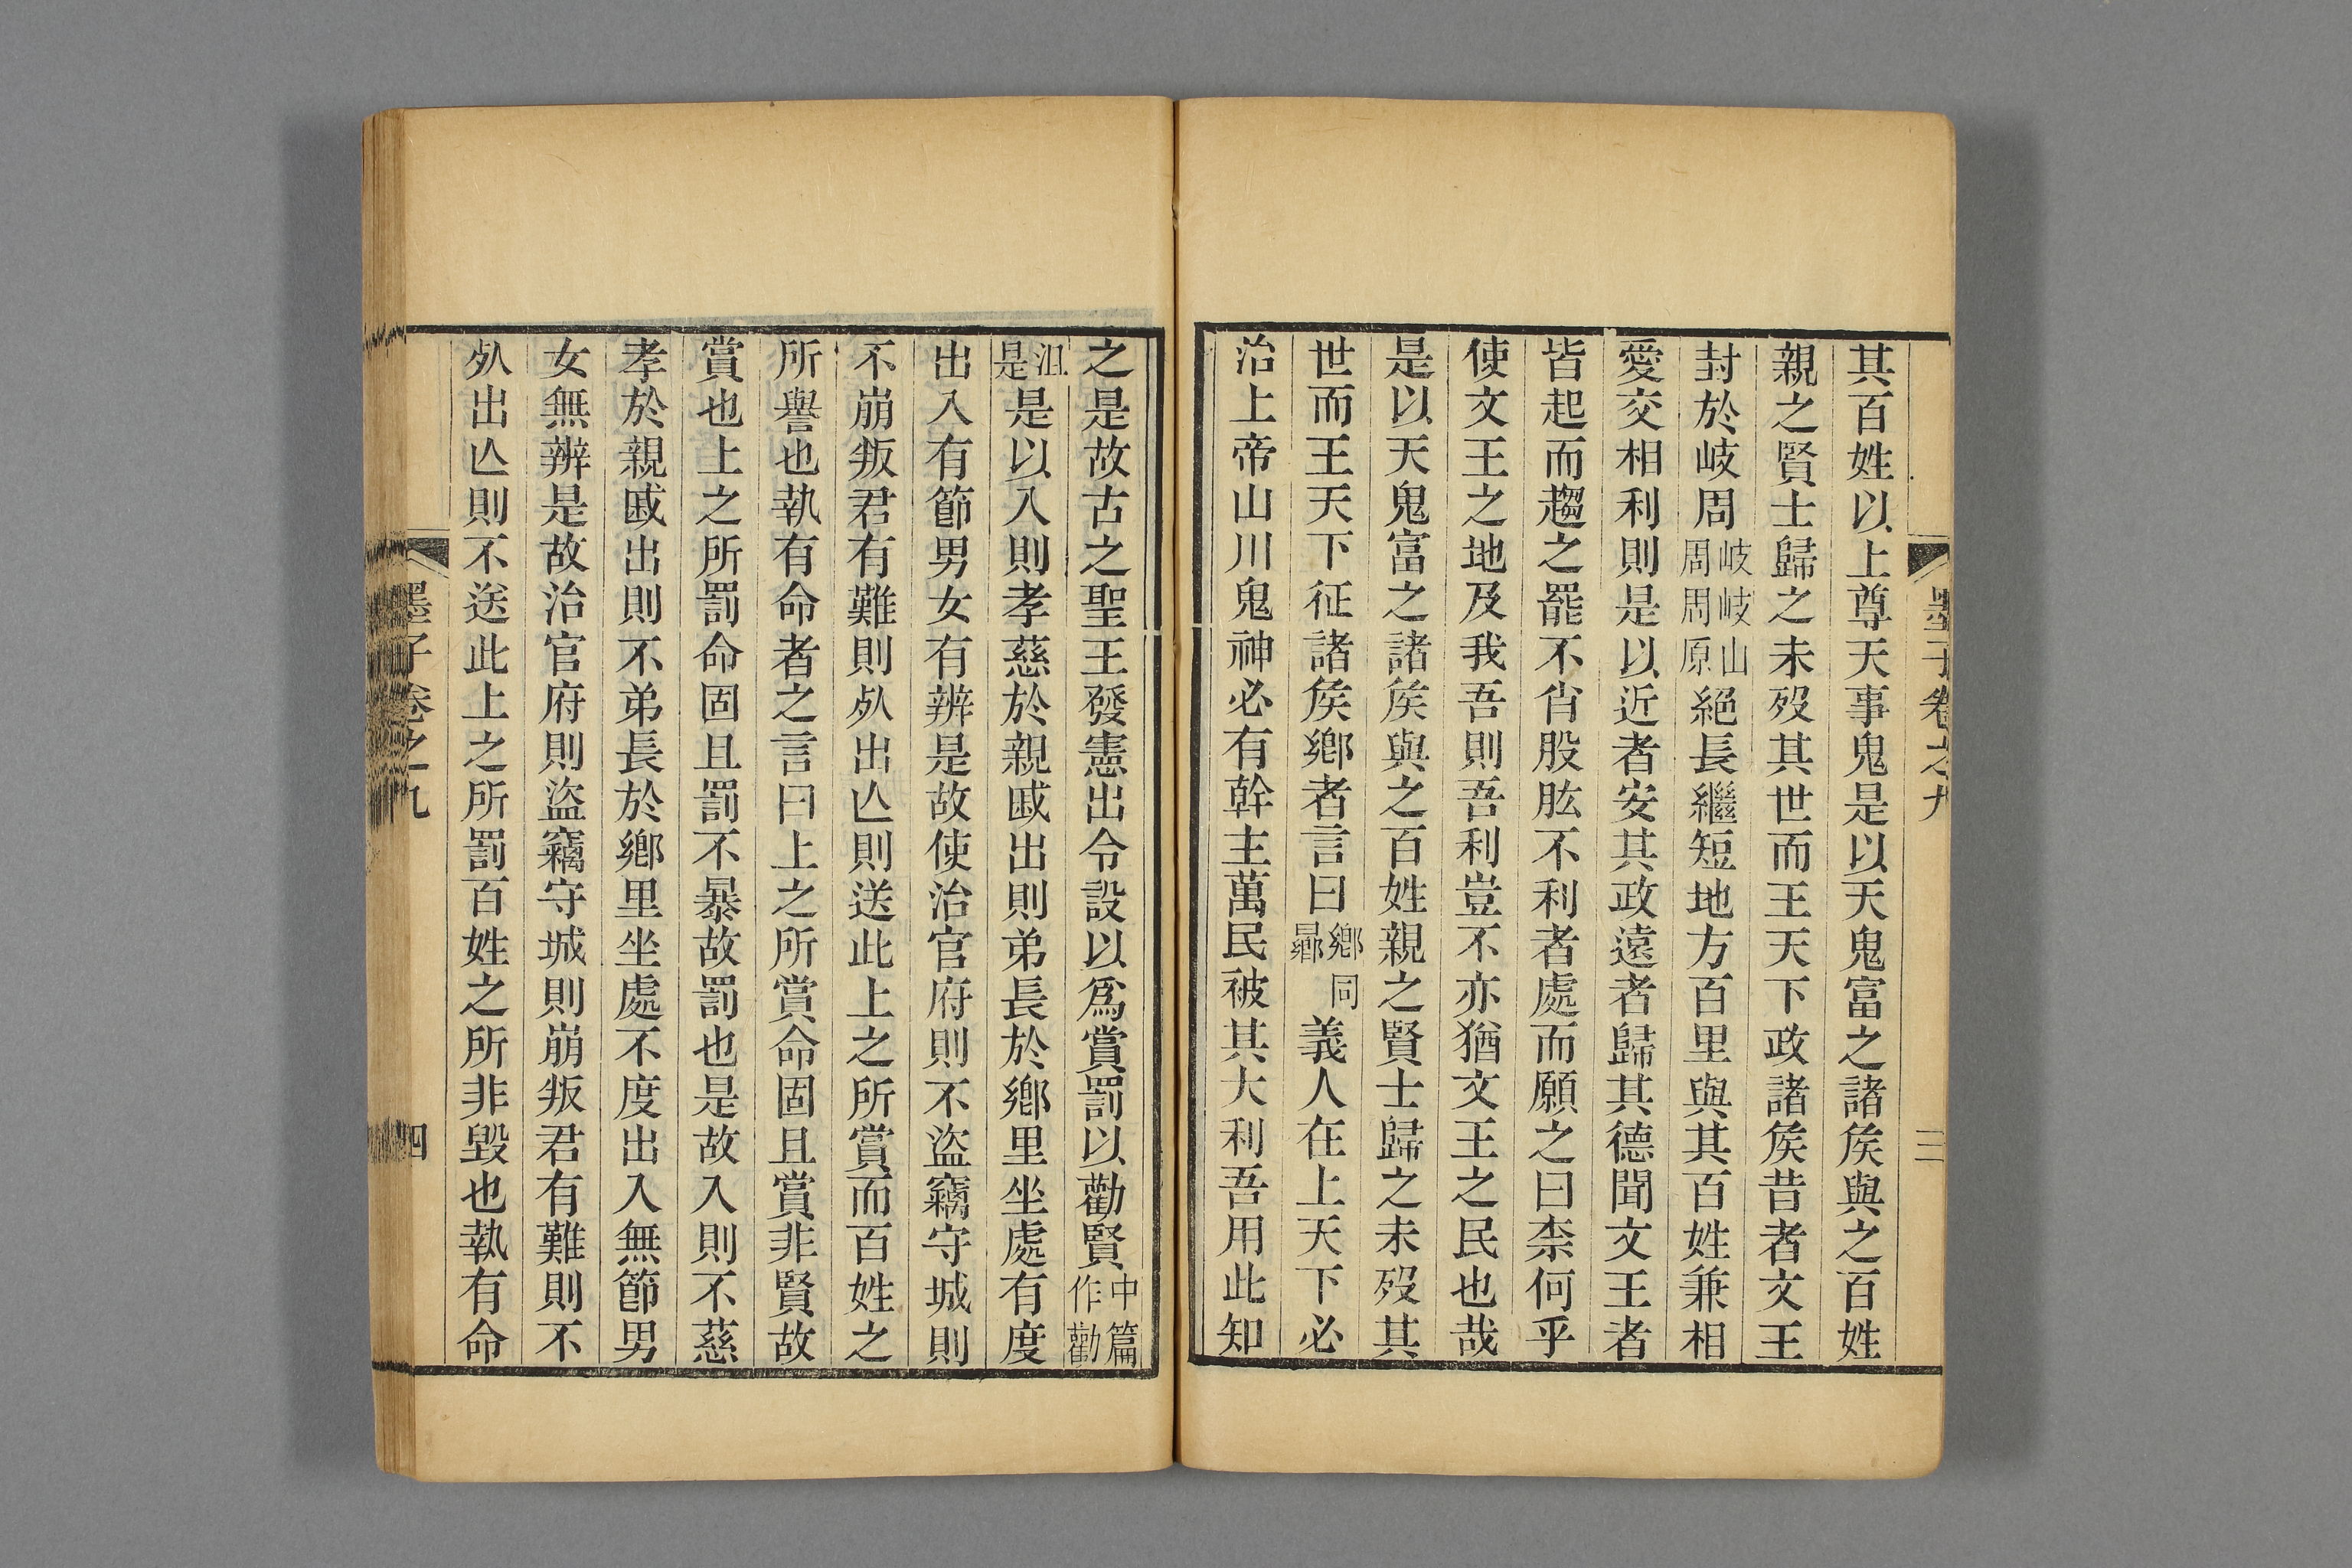 墨子卷之九
三
其百姓以上尊天事鬼是以天鬼富之諸矦與之百姓
親之賢士歸之未歿其世而王天下政諸矦昔者文王
封於岐周岐岐山周周原絕長繼短地方百里與其百姓兼相
愛交相利則是以近者安其政遠者歸其德聞文王者
皆起而趨之罷不肖股肱不利者處而願之曰柰何乎
使文王之地及我吾則吾利豈不亦猶文王之民也哉
是以天鬼富之諸矦與之百姓親之賢士歸之未歿其
世而王天下征諸矦鄉者言曰鄉同曏義人在上天下必
治上帝山川鬼神必有幹主萬民被其大利吾用此知
之是故古之聖王發憲出令設以爲賞罰以勸賢中篇作勸
沮是是以入則孝慈於親戚出則弟長於鄉里坐處有度
出入有節男女有辨是故使治官府則不盜竊守城則
不崩叛君有難則𣦸出亾則送此上之所賞而百姓之
所譽也執有命者之言曰上之所賞命固且賞非賢故
賞也上之所罰命固且罰不暴故罰也是故入則不慈
孝於親戚出則不弟長於鄉里坐處不度出入無節男
女無辨是故治官府則盜竊守城則崩叛君有難則不
𣦸出亾則不送此上之所罰百姓之所非毀也執有命
墨子卷之九
四